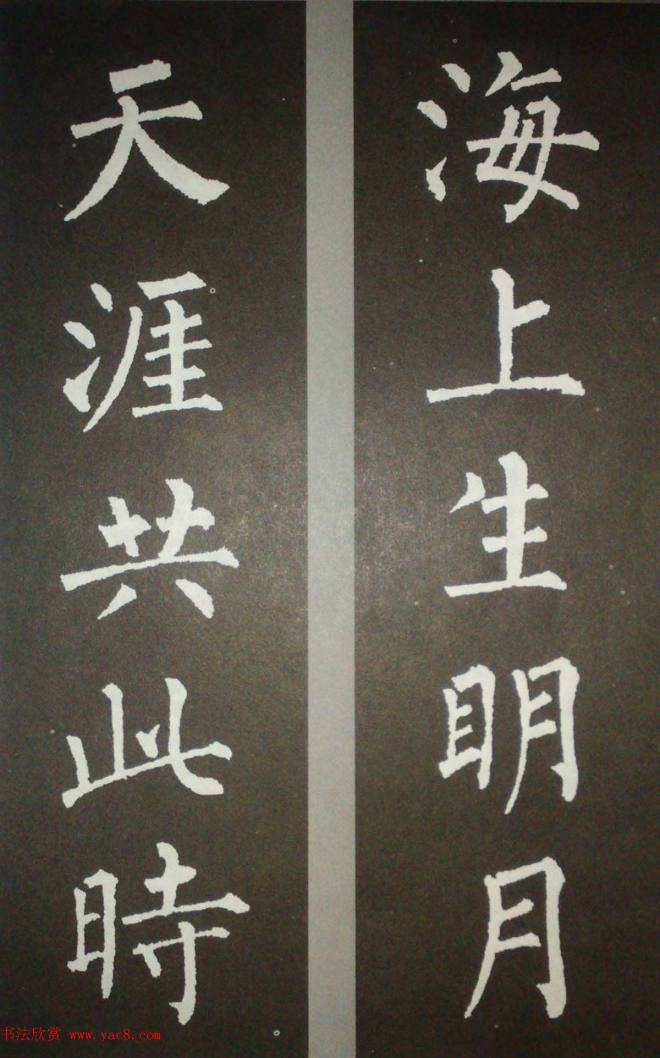 海上生明月
天涯共此時
书法欣赏 www.yac8.com